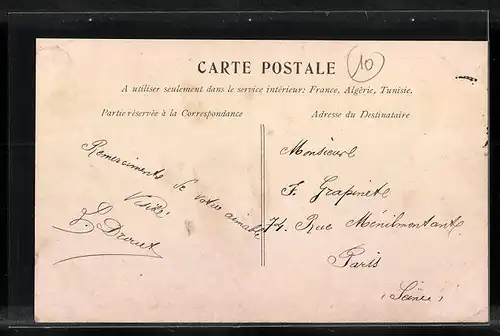 CARTE POSTALE
10
A utiliser seulement dans le service intérieur: France, Algérie, Tunisie.
Partie réservée à la Correspondance
Adresse du Destinataire
Remerciments de votre aimable
Visite
Monsieur
F. Grapinete
74, Rue Ménilmontant
Paris
(Seine)